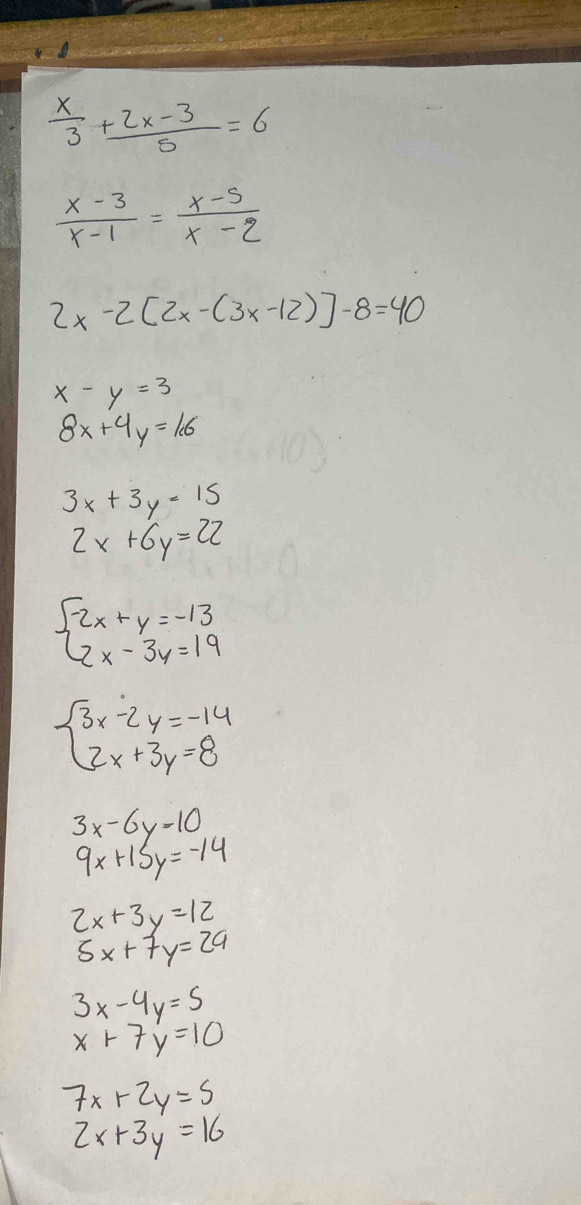 x/3 + (2x-3)/5 = 6
(x-3)/(x-1) = (x-5)/(x-2)
2x-2[2x-(3x-12)]-8=40
x-y=3
8x+4y=16
3x+3y=15
2x+6y=22
{-2x+y=-13
2x-3y=19
{3x-2y=-14
2x+3y=8
3x-6y=10
9x+15y=-14
2x+3y=12
5x+7y=29
3x-4y=5
x+7y=10
7x+2y=5
2x+3y=16